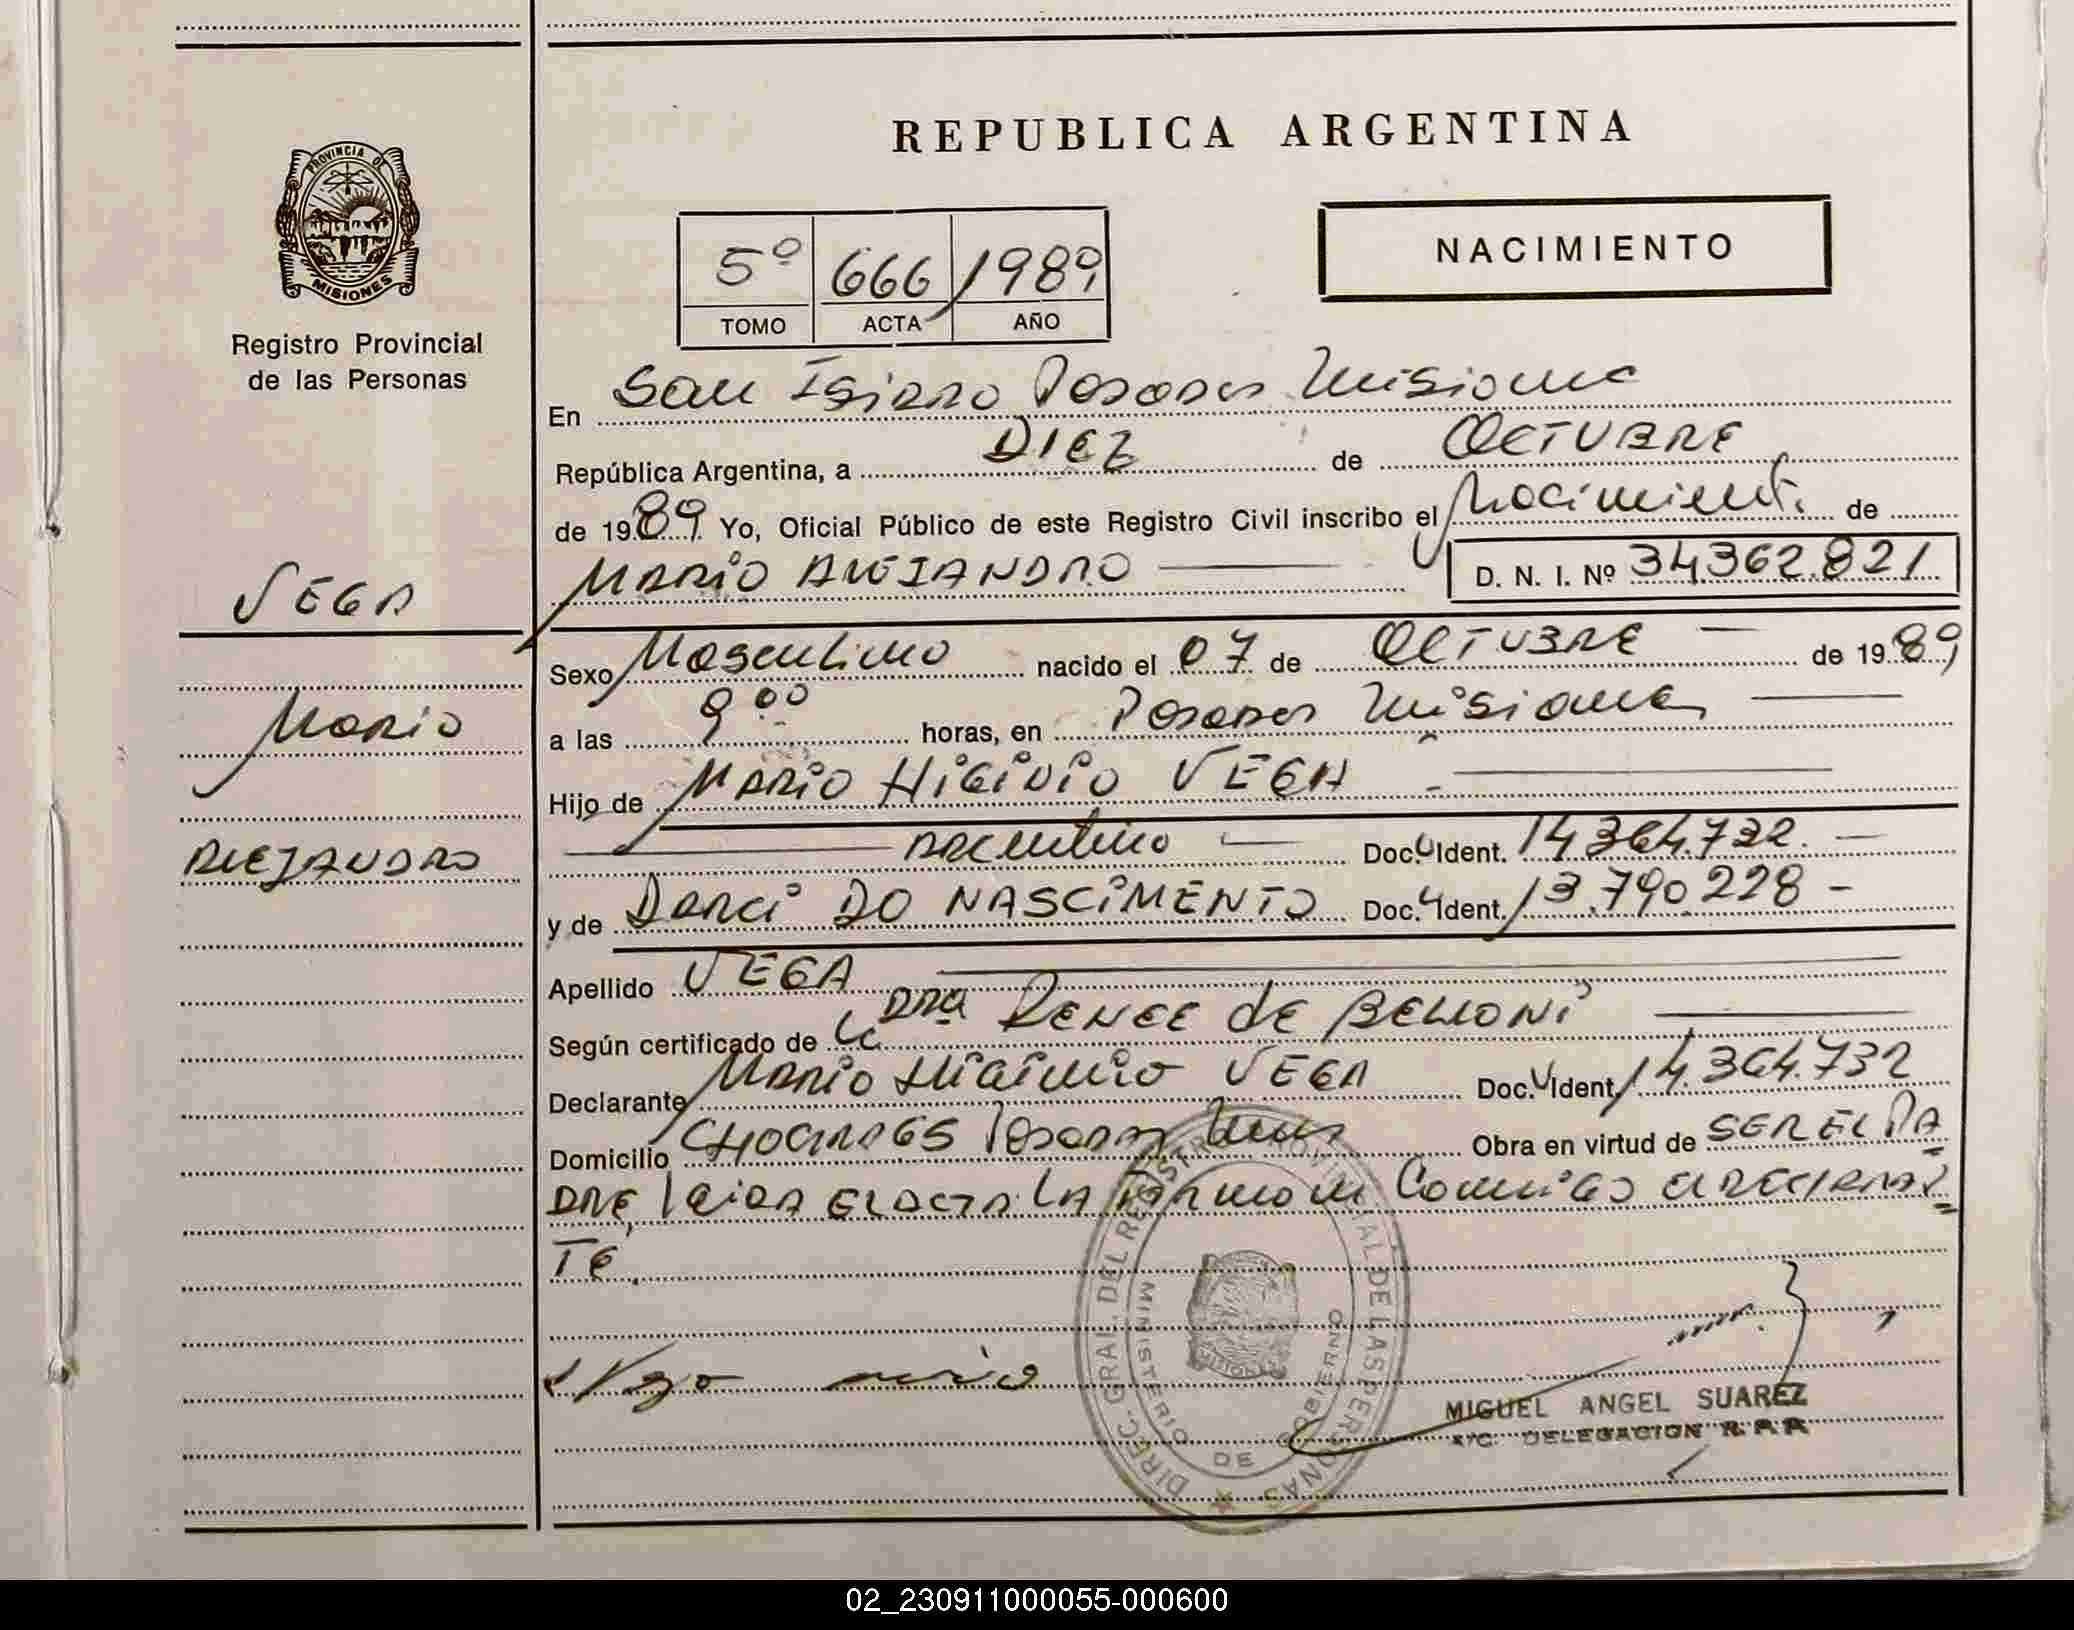 REPUBLICA ARGENTINA
PROVINCIA DE MISIONES
Registro Provincial
de las Personas
5º 666 1989
TOMO ACTA AÑO
NACIMIENTO
En San Isidro Posadas Misiones
República Argentina, a DIEZ de OCTUBRE
de 1989 Yo, Oficial Público de este Registro Civil inscribo el Nacimiento de
MARIO ALEJANDRO D. N. I. Nº 34362.821
VEGA
Mario
ALEJANDRO
Sexo Masculino nacido el 07 de OCTUBRE de 1989
a las 9 00 horas, en Posadas Misiones
Hijo de MARIO HIGINIO VEGA
Argentino Doc. Ident. 14.364.732.
y de Darci DO NASCIMENTO Doc. Ident. 13.790.228
Apellido VEGA
Según certificado de Dra RENEE de BELLONI
Declarante Mario Higinio VEGA Doc. Ident. 14.364.732
Domicilio Posadas Obra en virtud de SER EL PA
DRE, leida EL ACTA LA Firmo m Comigo
TE.
Vega
DIREC. GRAL. DEL REGISTRO PROVINCIAL DE LAS PERSONAS
MINISTERIO DE GOBIERNO
MISIONES
MIGUEL ANGEL SUAREZ
A/C. DELEGACION R.P.P.
02_230911000055-000600